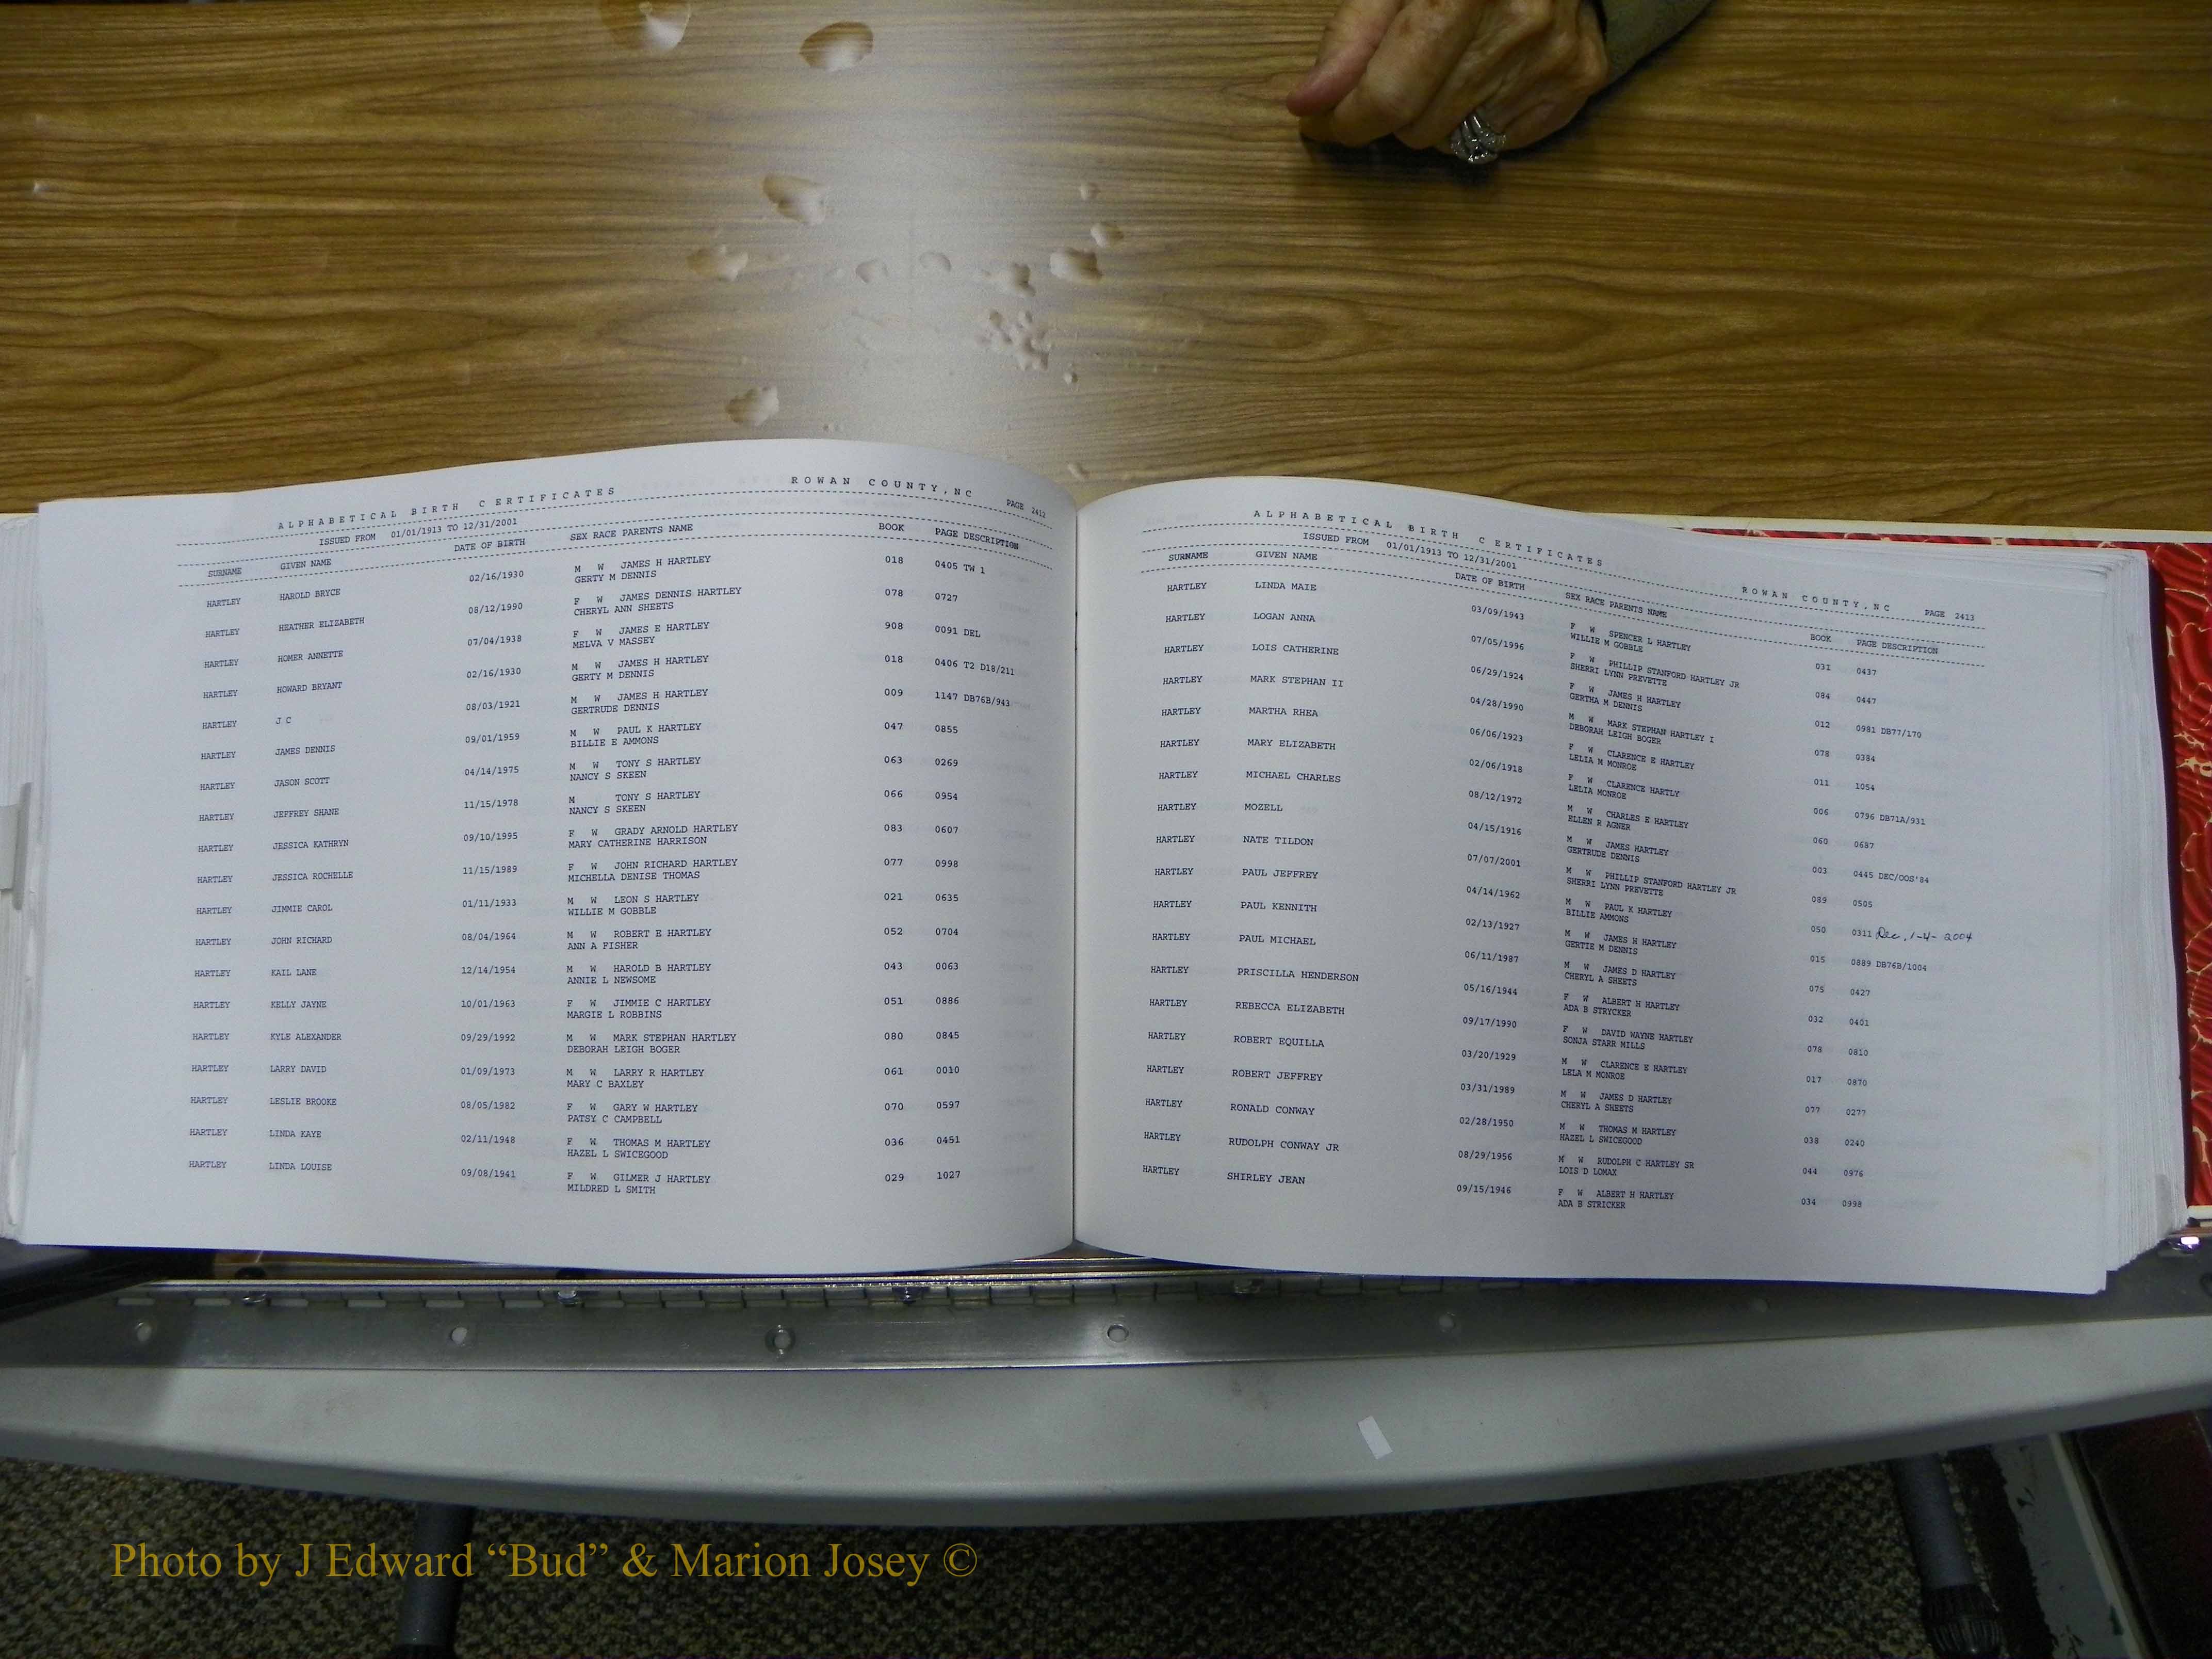 ALPHABETICAL BIRTH CERTIFICATES ROWAN COUNTY, NC PAGE 2412
ISSUED FROM 01/01/1913 TO 12/31/2001
SURNAME GIVEN NAME DATE OF BIRTH SEX RACE PARENTS NAME BOOK PAGE DESCRIPTION
HARTLEY HAROLD BRYCE 02/16/1930 M W JAMES H HARTLEY 018 0405 TW 1
GERTY M DENNIS
HARTLEY HEATHER ELIZABETH 08/12/1990 F W JAMES DENNIS HARTLEY 078 0727
CHERYL ANN SHEETS
HARTLEY HOMER ANNETTE 07/04/1938 F W JAMES E HARTLEY 908 0091 DEL
MELVA V MASSEY
HARTLEY HOWARD BRYANT 02/16/1930 M W JAMES H HARTLEY 018 0406 T2 D18/211
GERTY M DENNIS
HARTLEY J C 08/03/1921 M W JAMES H HARTLEY 009 1147 DB76B/943
GERTRUDE DENNIS
HARTLEY JAMES DENNIS 09/01/1959 M W PAUL K HARTLEY 047 0855
BILLIE E AMMONS
HARTLEY JASON SCOTT 04/14/1975 M W TONY S HARTLEY 063 0269
NANCY S SKEEN
HARTLEY JEFFREY SHANE 11/15/1978 M TONY S HARTLEY 066 0954
NANCY S SKEEN
HARTLEY JESSICA KATHRYN 09/10/1995 F W GRADY ARNOLD HARTLEY 083 0607
MARY CATHERINE HARRISON
HARTLEY JESSICA ROCHELLE 11/15/1989 F W JOHN RICHARD HARTLEY 077 0998
MICHELLA DENISE THOMAS
HARTLEY JIMMIE CAROL 01/11/1933 M W LEON S HARTLEY 021 0635
WILLIE M GOBBLE
HARTLEY JOHN RICHARD 08/04/1964 M W ROBERT E HARTLEY 052 0704
ANN A FISHER
HARTLEY KAIL LANE 12/14/1954 M W HAROLD B HARTLEY 043 0063
ANNIE L NEWSOME
HARTLEY KELLY JAYNE 10/01/1963 F W JIMMIE C HARTLEY 051 0886
MARGIE L ROBBINS
HARTLEY KYLE ALEXANDER 09/29/1992 M W MARK STEPHAN HARTLEY 080 0845
DEBORAH LEIGH BOGER
HARTLEY LARRY DAVID 01/09/1973 M W LARRY R HARTLEY 061 0010
MARY C BAXLEY
HARTLEY LESLIE BROOKE 08/05/1982 F W GARY W HARTLEY 070 0597
PATSY C CAMPBELL
HARTLEY LINDA KAYE 02/11/1948 F W THOMAS M HARTLEY 036 0451
HAZEL L SWICEGOOD
HARTLEY LINDA LOUISE 09/08/1941 F W GILMER J HARTLEY 029 1027
MILDRED L SMITH
ALPHABETICAL BIRTH CERTIFICATES ROWAN COUNTY, NC PAGE 2413
ISSUED FROM 01/01/1913 TO 12/31/2001
SURNAME GIVEN NAME DATE OF BIRTH SEX RACE PARENTS NAME BOOK PAGE DESCRIPTION
HARTLEY LINDA MAIE 03/09/1943 F W SPENCER L HARTLEY 031 0437
WILLIE M GOBBLE
HARTLEY LOGAN ANNA 07/05/1996 F W PHILLIP STANFORD HARTLEY JR 084 0447
SHERRI LYNN PREVETTE
HARTLEY LOIS CATHERINE 06/29/1924 F W JAMES H HARTLEY 012 0981 DB77/170
GERTHA M DENNIS
HARTLEY MARK STEPHAN II 04/28/1990 M W MARK STEPHAN HARTLEY I 078 0384
DEBORAH LEIGH BOGER
HARTLEY MARTHA RHEA 06/06/1923 F W CLARENCE E HARTLEY 011 1054
LELIA M MONROE
HARTLEY MARY ELIZABETH 02/06/1918 F W CLARENCE HARTLY 006 0796 DB71A/931
LELIA MONROE
HARTLEY MICHAEL CHARLES 08/12/1972 M W CHARLES E HARTLEY 060 0687
ELLEN R AGNER
HARTLEY MOZELL 04/15/1916 M W JAMES HARTLEY 003 0445 DEC/OOS'84
GERTRUDE DENNIS
HARTLEY NATE TILDON 07/07/2001 M W PHILLIP STANFORD HARTLEY JR 089 0505
SHERRI LYNN PREVETTE
HARTLEY PAUL JEFFREY 04/14/1962 M W PAUL K HARTLEY 050 0311 Dec. 1-4-2004
BILLIE AMMONS
HARTLEY PAUL KENNITH 02/13/1927 M W JAMES H HARTLEY 015 0889 DB76B/1004
GERTIE M DENNIS
HARTLEY PAUL MICHAEL 06/11/1987 M W JAMES D HARTLEY 075 0427
CHERYL A SHEETS
HARTLEY PRISCILLA HENDERSON 05/16/1944 F W ALBERT H HARTLEY 032 0401
ADA B STRYCKER
HARTLEY REBECCA ELIZABETH 09/17/1990 F W DAVID WAYNE HARTLEY 078 0810
SONJA STARR MILLS
HARTLEY ROBERT EQUILLA 03/20/1929 M W CLARENCE E HARTLEY 017 0870
LELA M MONROE
HARTLEY ROBERT JEFFREY 03/31/1989 M W JAMES D HARTLEY 077 0277
CHERYL A SHEETS
HARTLEY RONALD CONWAY 02/28/1950 M W THOMAS M HARTLEY 038 0240
HAZEL L SWICEGOOD
HARTLEY RUDOLPH CONWAY JR 08/29/1956 M W RUDOLPH C HARTLEY SR 044 0976
LOIS D LOMAX
HARTLEY SHIRLEY JEAN 09/15/1946 F W ALBERT H HARTLEY 034 0998
ADA B STRICKER
Photo by J Edward “Bud” & Marion Josey ©